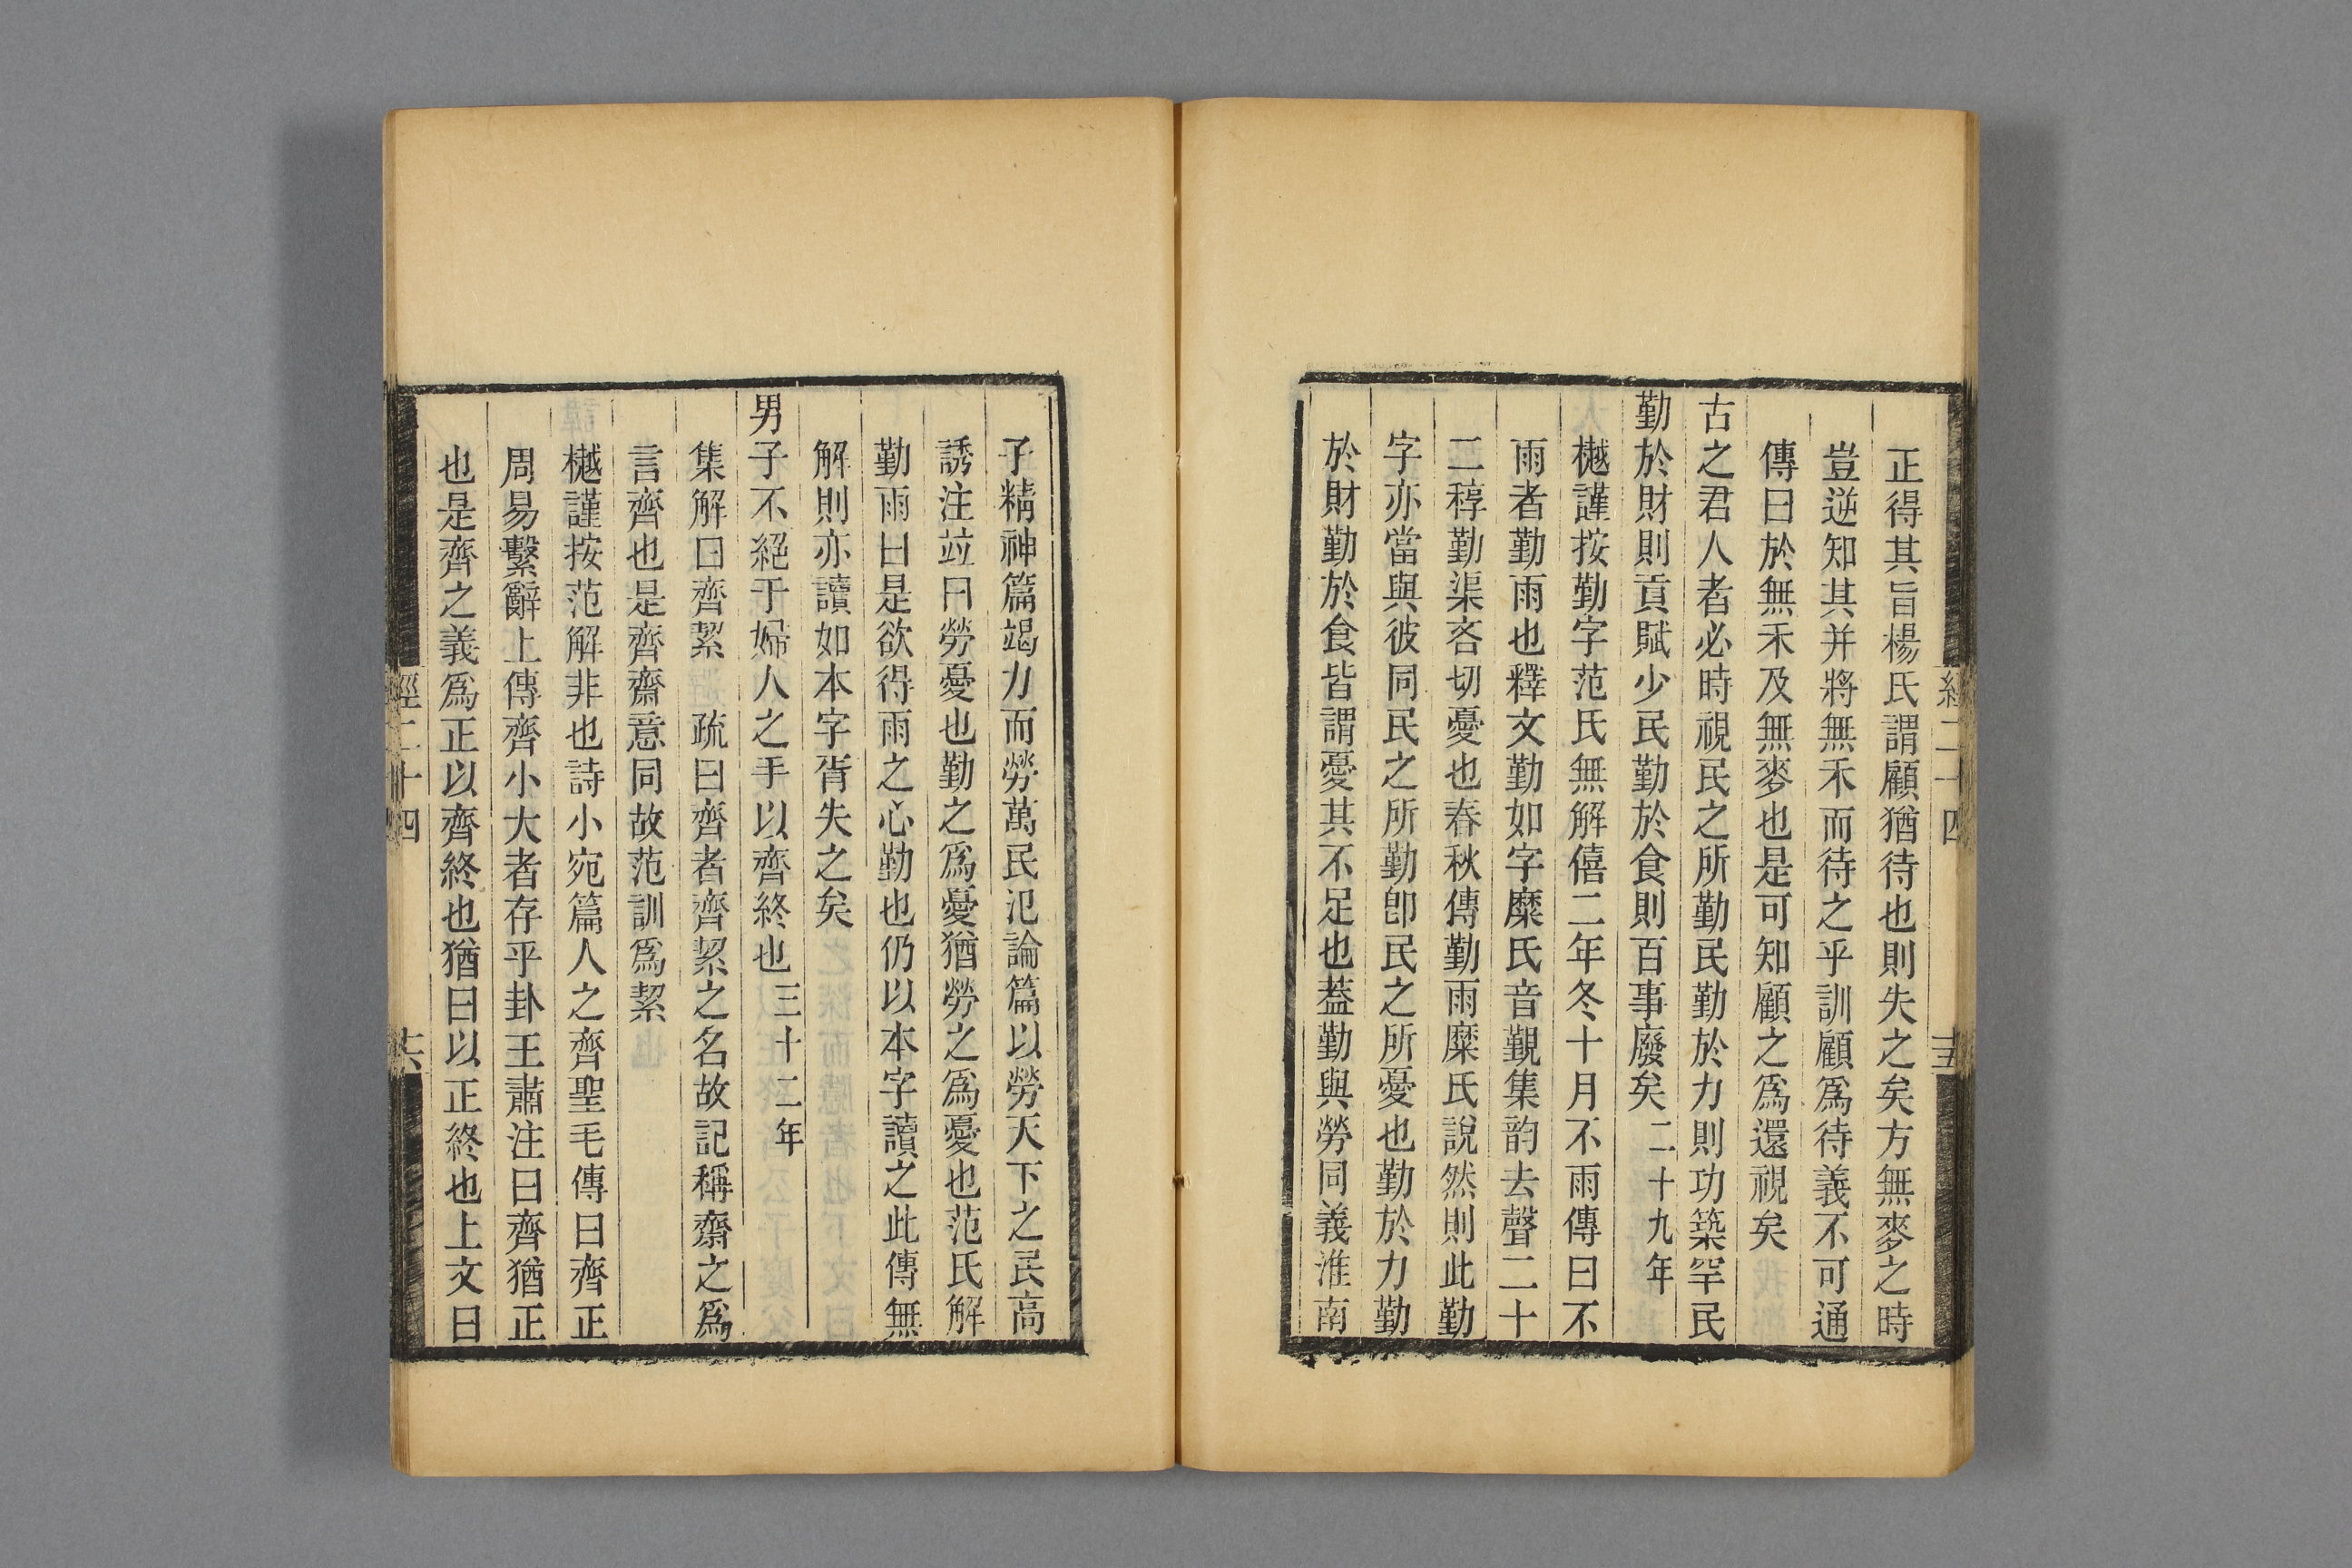 正得其旨楊氏謂顧猶待也則失之矣方無麥之時
豈逆知其并將無禾而待之乎訓顧爲待義不可通
傳曰於無禾及無麥也是可知顧之爲還視矣
古之君人者必時視民之所勤民勤於力則功築罕民
勤於財則貢賦少民勤於食則百事廢矣二十九年
樾謹按勤字范氏無解僖二年冬十月不雨傳曰不
雨者勤雨也釋文勤如字糜氏音覲集韵去聲二十
二稕勤渠吝切憂也春秋傳勤雨糜氏說然則此勤
字亦當與彼同民之所勤卽民之所憂也勤於力勤
於財勤於食皆謂憂其不足也葢勤與勞同義淮南
子精神篇竭力而勞萬民氾論篇以勞天下之民高
誘注竝曰勞憂也勤之爲憂猶勞之爲憂也范氏解
勤雨曰是欲得雨之心勤也仍以本字讀之此傳無
解則亦讀如本字胥失之矣
男子不絕于婦人之手以齊終也三十二年
集解曰齊絜 疏曰齊者齊絜之名故記稱齋之爲
言齊也是齊齋意同故范訓爲絜
樾謹按范解非也詩小宛篇人之齊聖毛傳曰齊正
周易繫辭上傳齊小大者存乎卦王肅注曰齊猶正
也是齊之義爲正以齊終也猶曰以正終也上文曰
經二十四
十六